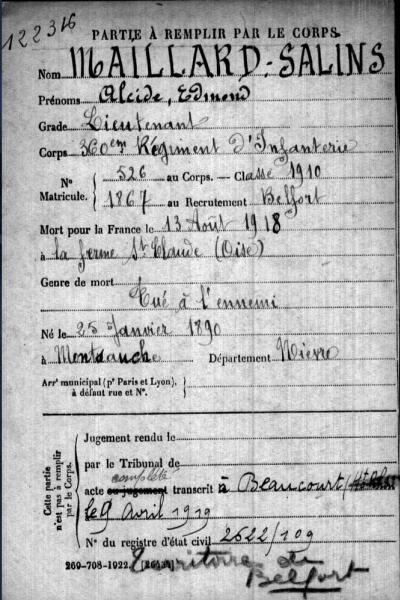 122316
PARTIE À REMPLIR PAR LE CORPS.
Nom MAILLARD-SALINS
Prénoms Alcide, Edmond
Grade Lieutenant
Corps 360em Régiment D'Infanterie
N° Matricule. 526 au Corps. — Classe 1910
1867 au Recrutement Belfort
Mort pour la France le 13 Août 1918
à la ferme St Claude (Oise)
Genre de mort
Tué à l'ennemi
Né le 25 Janvier 1890
à Montsauche Département Nièvre
Arrt municipal (pr Paris et Lyon), à défaut rue et N°.
Cette partie n'est pas à remplir par le Corps.
Jugement rendu le
par le Tribunal de
complété
acte ou jugement transcrit à Beaucourt
le 9 Avril 1919
N° du registre d'état civil 2622/109
Territoire de
269-708-1922. Belfort